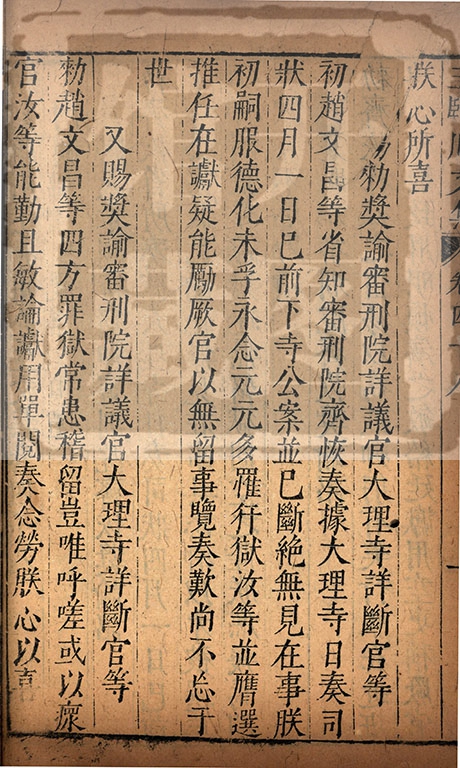 朕心所喜
賜勑獎諭審刑院詳議官大理寺詳斷官等
勑趙文昌等省知審刑院齊恢奏據大理寺日奏司
狀四月一日已前下寺公案並已斷絕無見在事朕
初嗣服德化未孚永念元元多罹犴獄汝等並膺選
推任在讞疑能勵厥官以無留事覽奏歎尚不忘于
世
又賜獎諭審刑院詳議官大理寺詳斷官等
勑趙文昌等四方罪獄常患稽留豈唯呼嗟或以瘐
官汝等能勤且敏論讞用單閱奏念勞朕心以喜